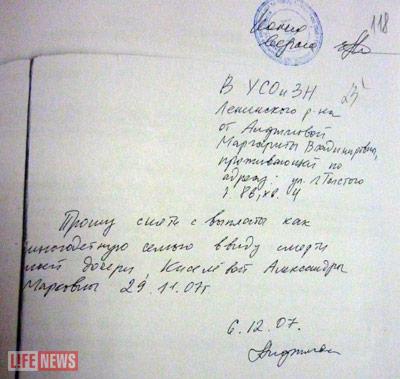 118
Копия
верна
В УСОиЗН
Ленинского р-на
от
Маргариты Владимировны,
проживающей по
адресу: ул. Л. Толстого
д. 8в, кв. 4
Прошу снять с выплаты как
многодетную семью ввиду смерти
моей дочери, Киселёвой Александры
Марковны 29.11.07г
6.12.07.
LIFE NEWS